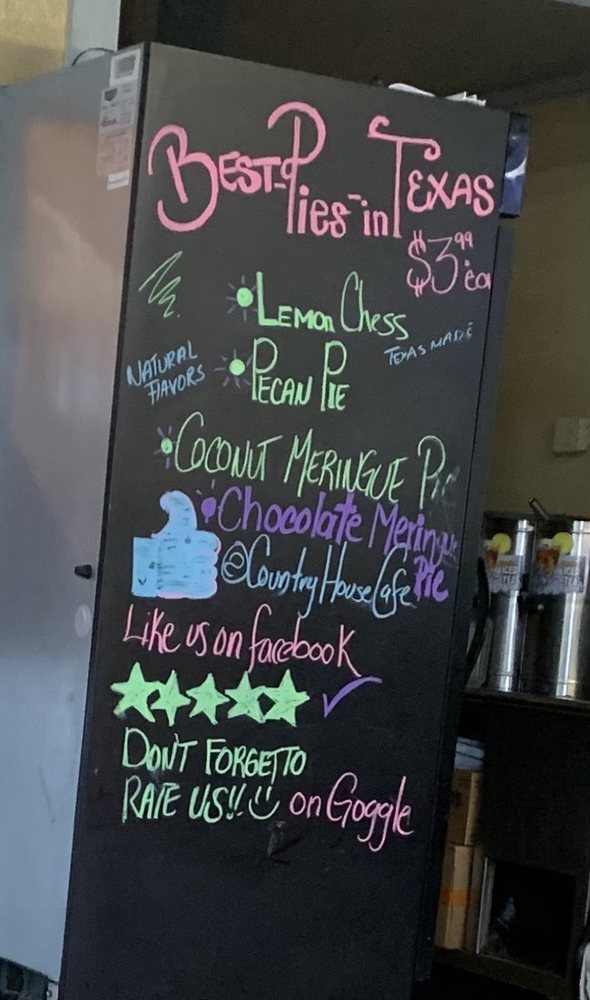 Best Pies in Texas
$3.99 ea
Lemon Chess
Texas Made
Natural Flavors
Pecan Pie
Coconut Meringue Pie
Chocolate Meringue Pie
@CountryHouseCafe
Like us on facebook
Don't Forget to
Rate us!! on Goggle
ICED TEA
ICED TEA